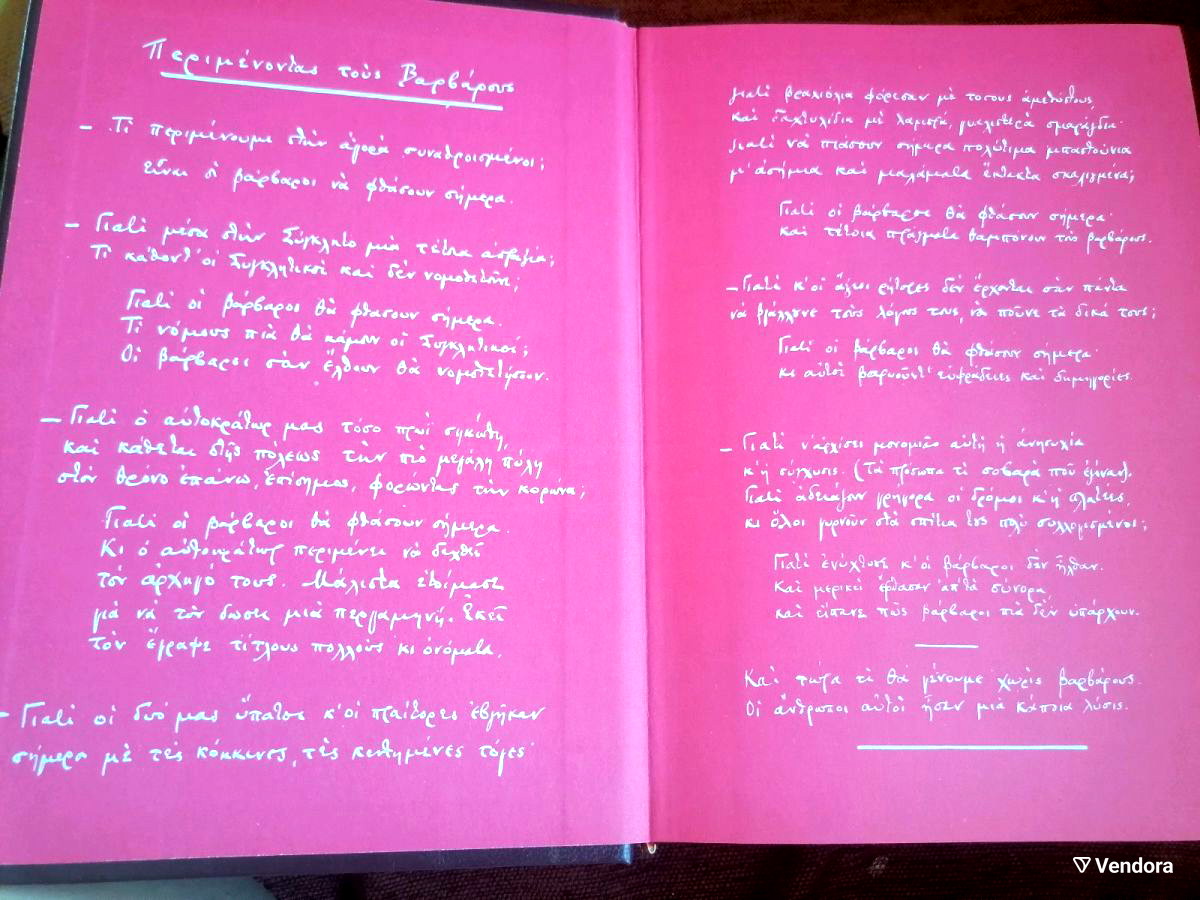 Περιμένοντας τοὺς Βαρβάρους
– Τί περιμένουμε στὴν ἀγορὰ συναθροισμένοι;
εἶναι οἱ βάρβαροι νὰ φθάσουν σήμερα.
– Γιατὶ μέσα στὴν Σύγκλητο μιὰ τέτοια ἀπραξία;
Τί κάθοντ' οἱ Συγκλητικοὶ καὶ δὲν νομοθετοῦνε;
Γιατὶ οἱ βάρβαροι θὰ φθάσουν σήμερα.
Τί νόμους πιὰ θὰ κάμουν οἱ Συγκλητικοί;
Οἱ βάρβαροι σὰν ἔλθουν θὰ νομοθετήσουν.
– Γιατὶ ὁ αὐτοκράτωρ μας τόσο πρωῒ σηκώθη,
καὶ κάθεται στῆς πόλεως τὴν πιὸ μεγάλη πύλη
στὸν θρόνο ἐπάνω, ἐπίσημος, φορώντας τὴν κορώνα;
Γιατὶ οἱ βάρβαροι θὰ φθάσουν σήμερα.
Κι ὁ αὐτοκράτωρ περιμένει νὰ δεχθεῖ
τὸν ἀρχηγό τους. Μάλιστα ἑτοίμασε
γιὰ νὰ τὸν δώσει μιὰ περγαμηνή. Ἐκεῖ
τὸν ἔγραψε τίτλους πολλοὺς κι ὀνόματα.
– Γιατὶ οἱ δυό μας ὕπατοι κ' οἱ πραίτορες ἐβγῆκαν
σήμερα μὲ τὲς κόκκινες, τὲς κεντημένες τόγες·
γιατὶ βραχιόλια φόρεσαν μὲ τόσους ἀμεθύστους,
καὶ δαχτυλίδια μὲ λαμπρά, γυαλιστερὰ σμαράγδια·
γιατὶ νὰ πιάσουν σήμερα πολύτιμα μπαστούνια
μ' ἀσήμια καὶ μαλάματα ἔκτακτα σκαλιγμένα;
Γιατὶ οἱ βάρβαροι θὰ φθάσουν σήμερα·
καὶ τέτοια πράγματα θαμπόνουν τοὺς βαρβάρους.
– Γιατὶ κ' οἱ ἄξιοι ρήτορες δὲν ἔρχονται σὰν πάντα
νὰ βγάλουνε τοὺς λόγους τους, νὰ ποῦνε τὰ δικά τους;
Γιατὶ οἱ βάρβαροι θὰ φθάσουν σήμερα·
κι αὐτοὶ βαρυοῦντ' εὐφράδειες καὶ δημηγορίες.
– Γιατὶ ν' ἀρχίσει μονομιᾶς αὐτὴ ἡ ἀνησυχία
κ' ἡ σύγχυσις. (Τὰ πρόσωπα τί σοβαρὰ ποὺ ἐγίναν).
Γιατὶ ἀδειάζουν γρήγορα οἱ δρόμοι κ' ἡ πλατέες,
κι ὅλοι γυρνοῦν στὰ σπίτια τους πολὺ συλλογισμένοι;
Γιατὶ ἐνύχτωσε κ' οἱ βάρβαροι δὲν ἦλθαν.
Καὶ μερικοὶ ἔφθασαν ἀπ' τὰ σύνορα,
καὶ εἴπανε πὼς βάρβαροι πιὰ δὲν ὑπάρχουν.
Καὶ τώρα τί θὰ γένουμε χωρὶς βαρβάρους.
Οἱ ἄνθρωποι αὐτοὶ ἦσαν μιὰ κάποια λύσις.
Vendora